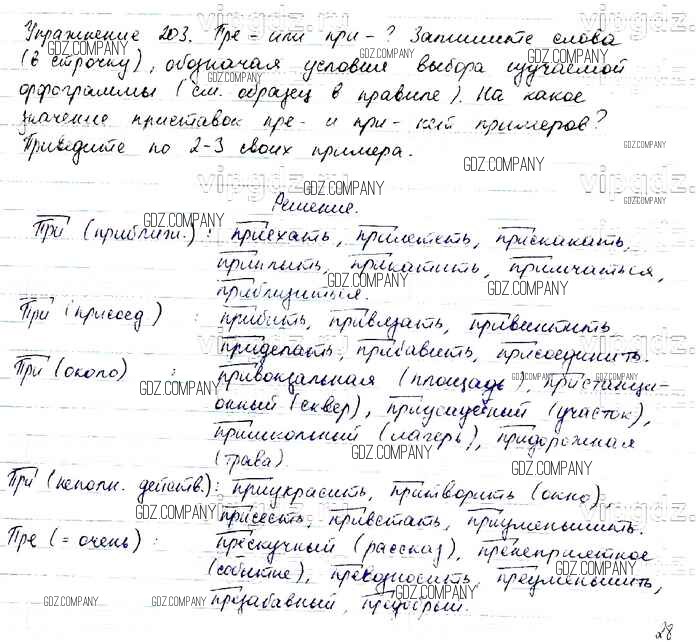 Упражнение 203. Пре- или при-? Запишите слова
(в строчку), обозначая условия выбора изучаемой
орфограммы (см. образец в правиле). На какое
значение приставок пре- и при- нет примеров?
Приведите по 2-3 своих примера.
Решение.
При (приближ.): приехать, прилететь, прискакать,
приплыть, прикатить, примчаться,
приблизиться.
При (присоед) : прибить, привязать, привинтить
приделать, прибавить, присоединить.
При (около) : привокзальная (площадь), пристанци-
онный (сквер), приусадебный (участок),
пришкольный (лагерь), придорожная
(трава).
При (неполн. действ.): приукрасить, притворить (окно),
присесть, привстать, приуменьшить.
Пре (= очень) : прескучный (рассказ), пренеприятное
(событие), превозносить, преуменьшить,
презабавный, предобрый.
28
GDZ.COMPANY
vipgdz.ru